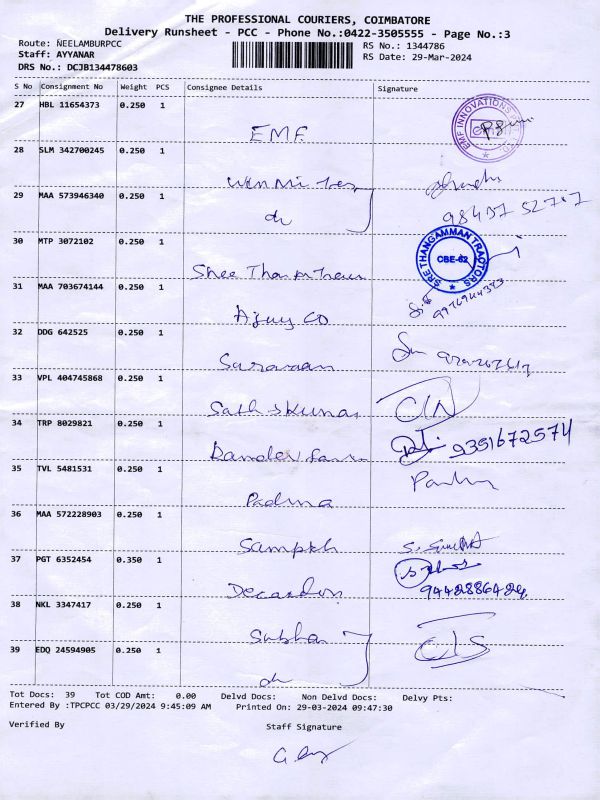 THE PROFESSIONAL COURIERS, COIMBATORE
Delivery Runsheet - PCC - Phone No.:0422-3505555 - Page No.:3
Route: NEELAMBURPCC
RS No.: 1344786
Staff: AYYANAR
RS Date: 29-Mar-2024
DRS No.: DCJB134478603
S No Consignment No Weight PCS Consignee Details Signature
27 HBL 11654373 0.250 1
EMF
EMF INNOVATIONS
28 SLM 342700245 0.250 1
29 MAA 573946340 0.250 1
do
30 MTP 3072102 0.250 1
Shree
SREE THANGAMMAN TRACTORS
CBE-62
31 MAA 703674144 0.250 1
Ajuy CO
32 DDG 642525 0.250 1
Saravaan
33 VPL 404745868 0.250 1
34 TRP 8029821 0.250 1
9351672574
35 TVL 5481531 0.250 1
Padma
36 MAA 572228903 0.250 1
37 PGT 6352454 0.350 1
9442886424
38 NKL 3347417 0.250 1
Subha
39 EDQ 24594905 0.250 1
do
Tot Docs: 39 Tot COD Amt: 0.00 Delvd Docs: Non Delvd Docs: Delvy Pts:
Entered By :TPCPCC 03/29/2024 9:45:09 AM Printed On: 29-03-2024 09:47:30
Verified By
Staff Signature